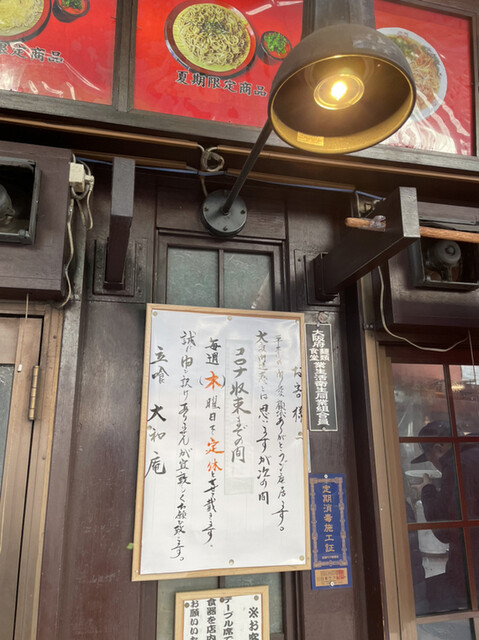 限定商品
夏期限定商品
お客様
ありがとうございます。
大変御迷惑とは思いますが次の間
コロナ収束までの間
毎週(木)曜日を定休とさせて戴きます。
誠に申し訳ありませんが宜敷くお願い致します。
立喰 大和庵
大阪府麺類食堂業生活衛生同業組合員
定期消毒施工証
※お客
テーブル席で
食器を店内
お願いい